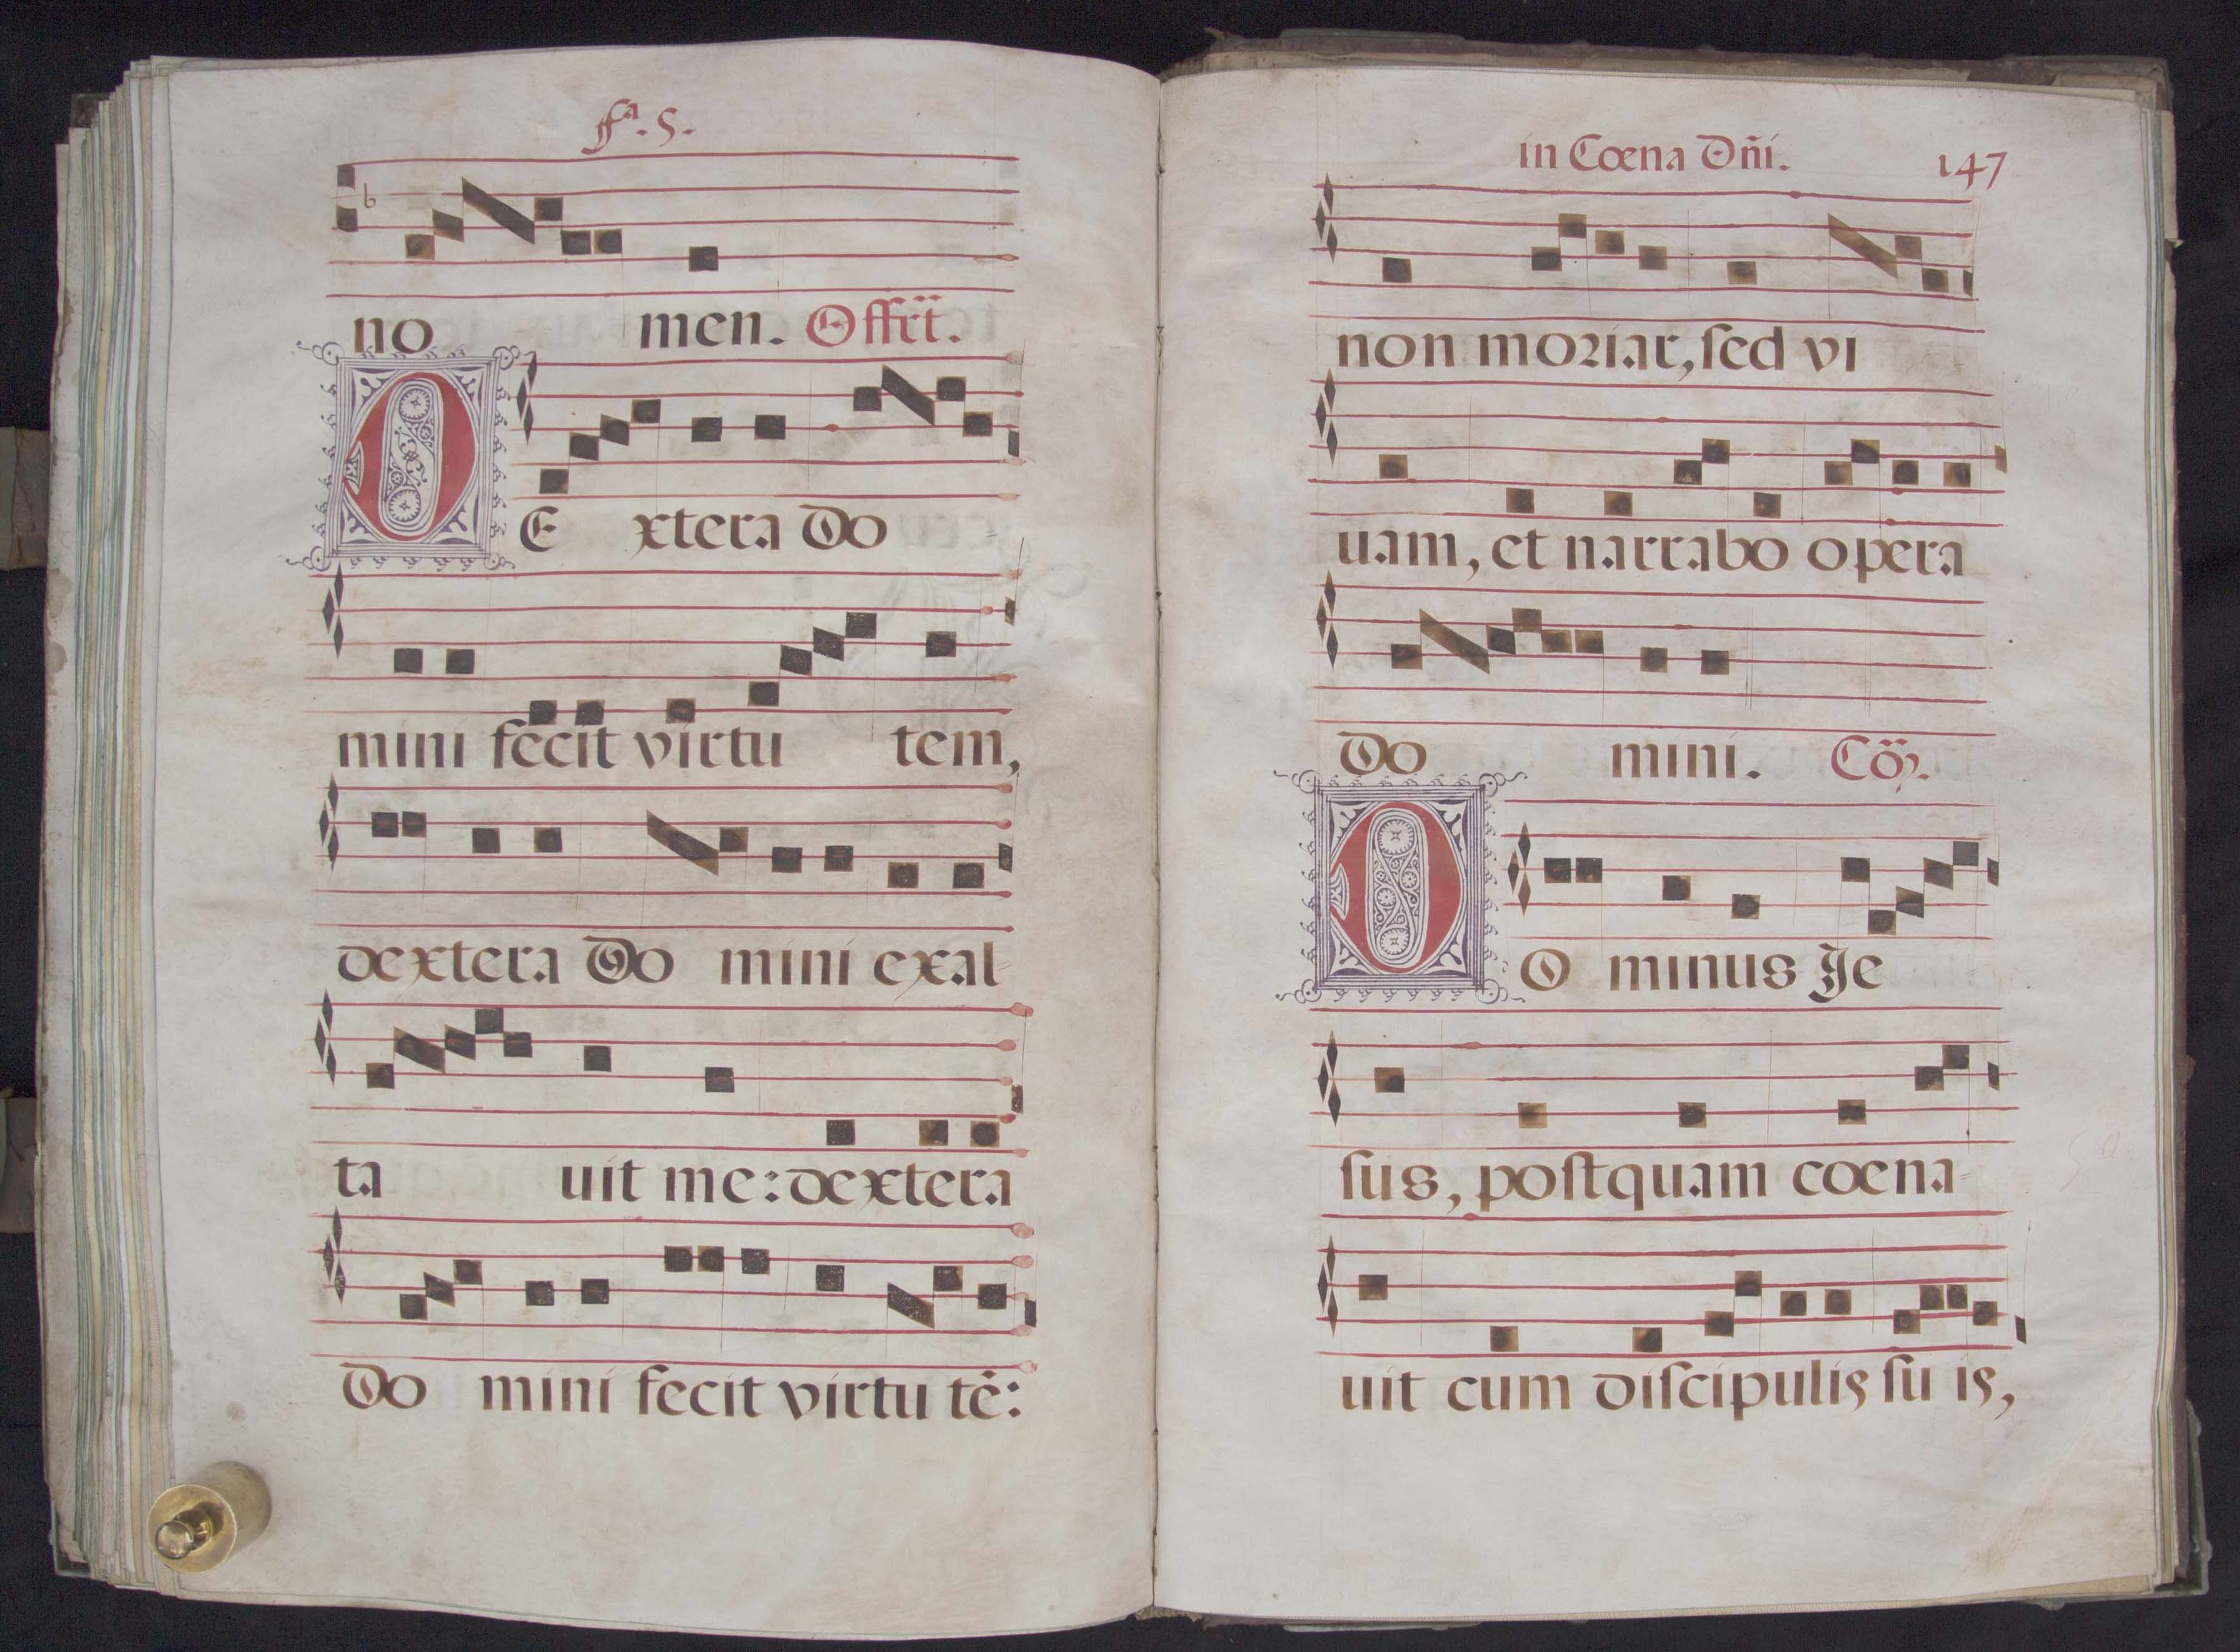 ffª. 5.
no men. Offr̃t.
DE xtera Do
mini fecit virtu tem,
dextera Do mini exal-
ta uit me: dextera
Do mini fecit virtu tẽ:
in Cœna Dñi. 147
non moriar, ſed vi
uam, et narrabo opera
Do mini. Cõ.
DO minus Je
ſus, poſtquam cœna-
uit cum diſcipulis ſu is,